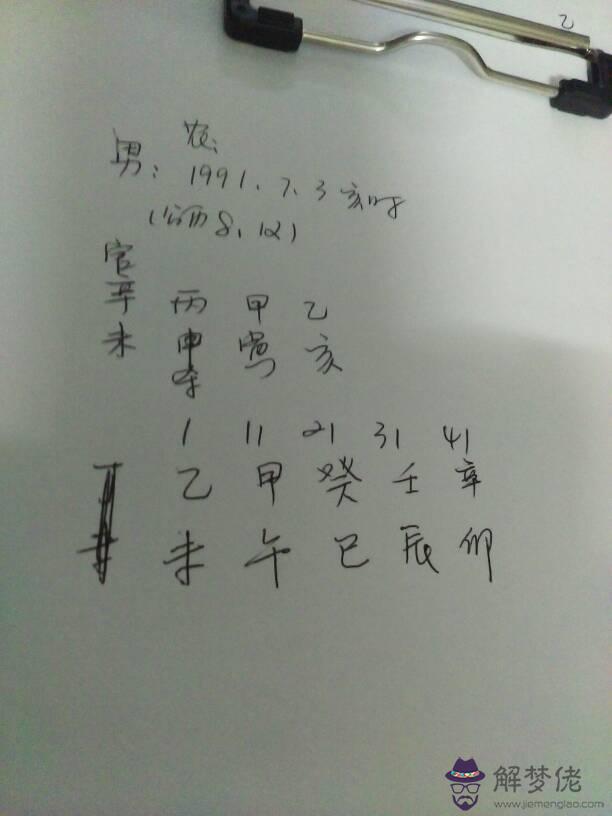 乙
农:
男: 1991.7.3 亥时
(公历8.12)
官
辛 丙 甲 乙
未 申 寅 亥
杀
1 11 21 31 41
乙 甲 癸 壬 辛
未 午 巳 辰 卯
解梦佬
www.jiemenglao.com